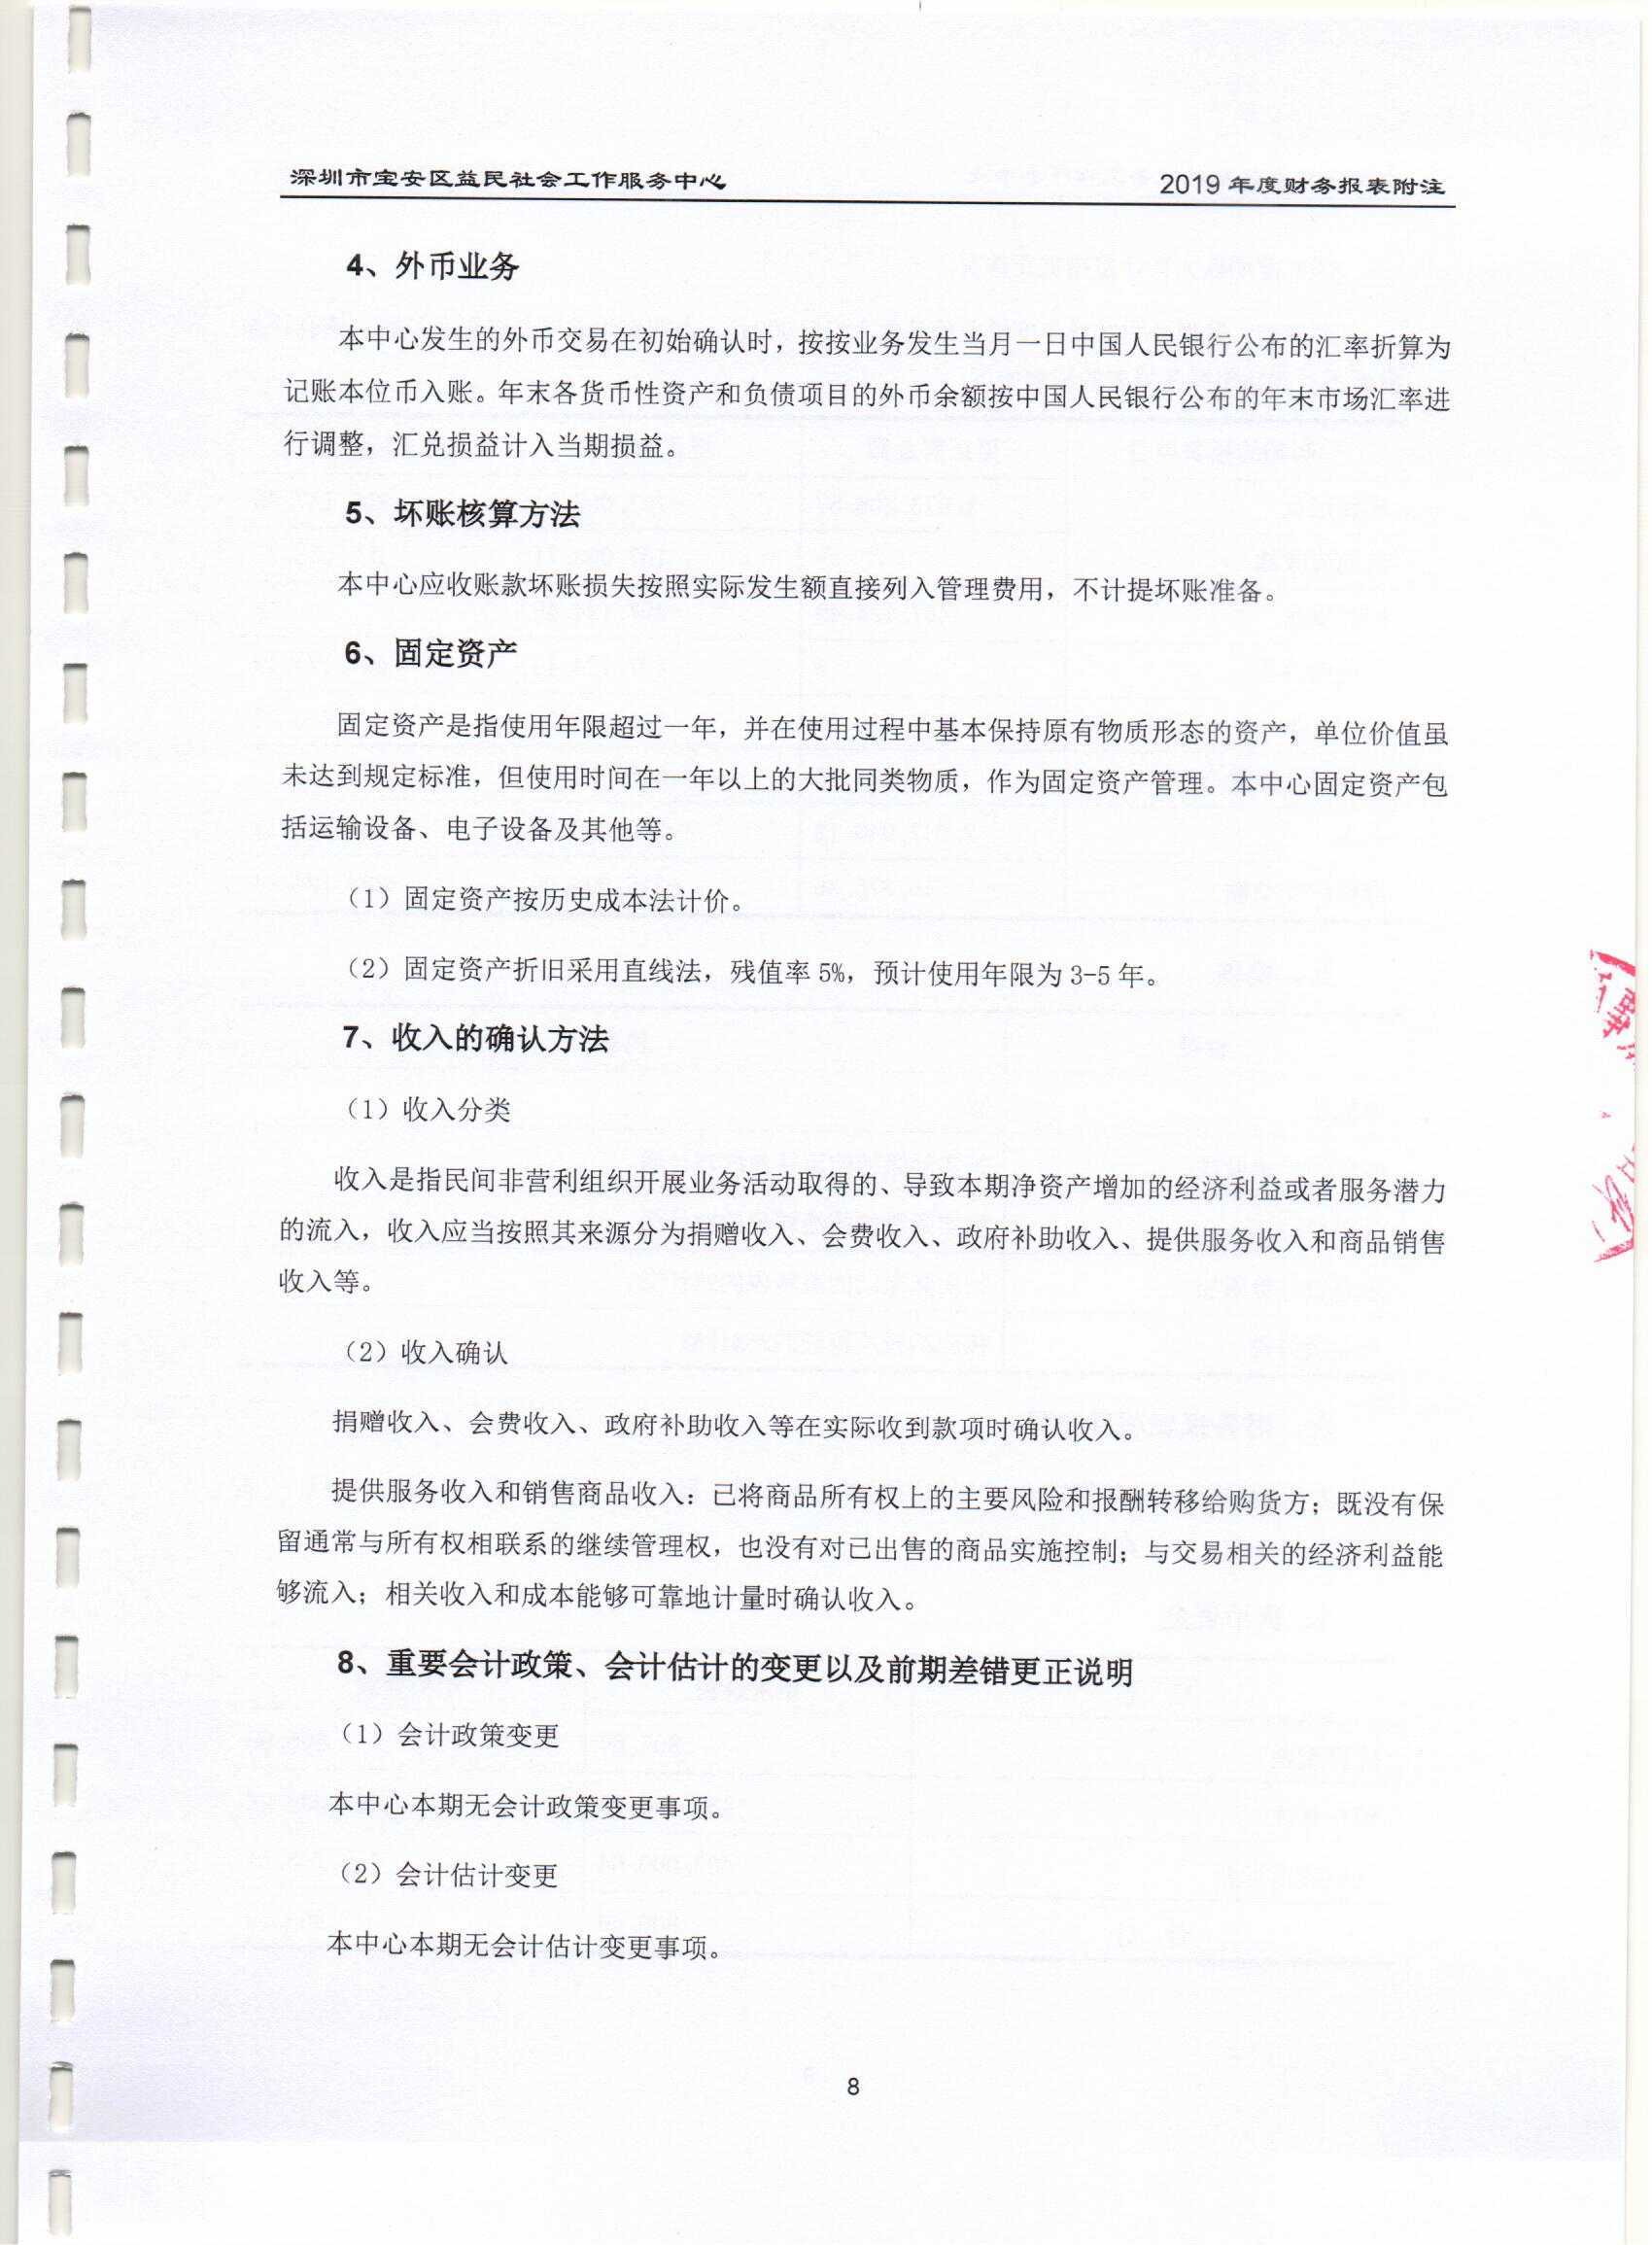 深圳市宝安区益民社会工作服务中心
2019 年度财务报表附注
4、外币业务
本中心发生的外币交易在初始确认时，按按业务发生当月一日中国人民银行公布的汇率折算为
记账本位币入账。年末各货币性资产和负债项目的外币余额按中国人民银行公布的年末市场汇率进
行调整，汇兑损益计入当期损益。
5、坏账核算方法
本中心应收账款坏账损失按照实际发生额直接列入管理费用，不计提坏账准备。
6、固定资产
固定资产是指使用年限超过一年，并在使用过程中基本保持原有物质形态的资产，单位价值虽
未达到规定标准，但使用时间在一年以上的大批同类物质，作为固定资产管理。本中心固定资产包
括运输设备、电子设备及其他等。
（1）固定资产按历史成本法计价。
（2）固定资产折旧采用直线法，残值率 5%，预计使用年限为 3-5 年。
7、收入的确认方法
（1）收入分类
收入是指民间非营利组织开展业务活动取得的、导致本期净资产增加的经济利益或者服务潜力
的流入，收入应当按照其来源分为捐赠收入、会费收入、政府补助收入、提供服务收入和商品销售
收入等。
（2）收入确认
捐赠收入、会费收入、政府补助收入等在实际收到款项时确认收入。
提供服务收入和销售商品收入：已将商品所有权上的主要风险和报酬转移给购货方；既没有保
留通常与所有权相联系的继续管理权，也没有对已出售的商品实施控制；与交易相关的经济利益能
够流入；相关收入和成本能够可靠地计量时确认收入。
8、重要会计政策、会计估计的变更以及前期差错更正说明
（1）会计政策变更
本中心本期无会计政策变更事项。
（2）会计估计变更
本中心本期无会计估计变更事项。
8